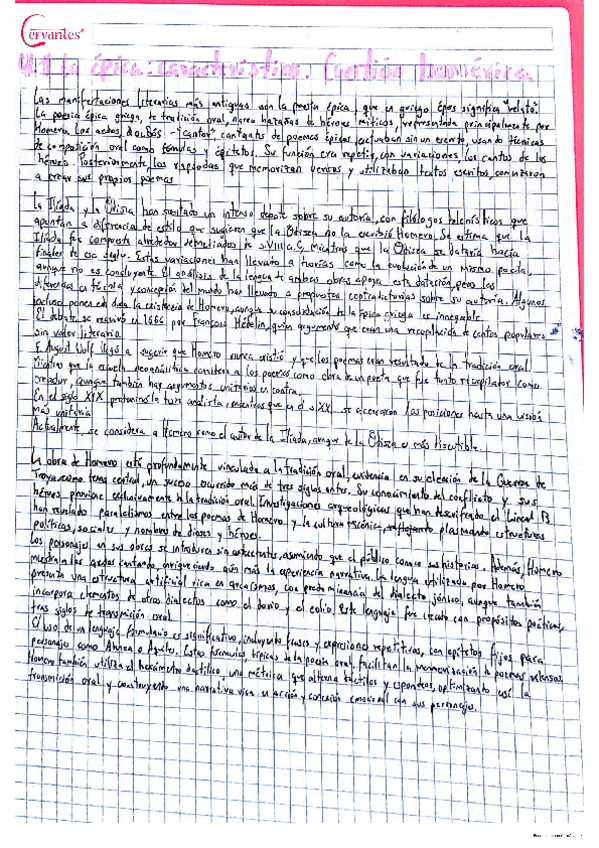 Cervantes
La épica: características. Cuestión homérica
Las manifestaciones literarias más antiguas son la poesía épica, que en griego épos significa "relato".
La poesía épica griega, de tradición oral, narra hazañas de héroes míticos, representada principalmente por
Homero. Los aedos, "cantor", cantantes de poemas épicos, actuaban sin un escrito, usando técnicas
de composición oral como fórmulas y epítetos. Su función era repetir, con variaciones, los cantos de los
héroes. Posteriormente, los rapsodas que memorizan versos y utilizaban textos escritos, comenzaron
a crear sus propios poemas
La Ilíada y la Odisea han suscitado un intenso debate sobre su autoría, con filólogos helenísticos que
apuntan a diferencias de estilo que sugieren que la Odisea no la escribió Homero. Se estima que la
Ilíada fue compuesta alrededor de mediados de s.VIII a.C, mientras que la Odisea se dataría hacia
finales de ese siglo. Estas variaciones han llevado a teorías como la evolución de un mismo poeta,
aunque no es concluyente. El análisis de la lengua de ambas obras apoya esta datación, pero las
diferencias en técnica y concepción del mundo han llevado a propuestas contradictorias sobre su autoría. Algunos
incluso ponen en duda la existencia de Homero, aunque su consolidación de la épica griega es innegable.
El debate se reavivó en 1666 por François Hédelin, quien argumentó que eran una recopilación de cantos populares
sin valor literario.
F. August Wolf llegó a sugerir que Homero nunca existió y que los poemas eran resultado de la tradición oral.
Mientras que la escuela neoanalítica considera a los poemas como obra de un poeta que fue tanto recopilador como
creador, aunque también hay argumentos unitarios en contra.
En el siglo XIX predominó la tesis analista, mientras que en el s.XX, se acercaron las posiciones hasta una visión
más unitaria
Actualmente, se considera a Homero como el autor de la Ilíada, aunque de la Odisea es más discutible.
La obra de Homero está profundamente vinculada a la tradición oral, evidencia en su elección de la Guerra de
Troya como tema central, un suceso ocurrido más de tres siglos antes. Su conocimiento del conflicto y sus
héroes proviene exclusivamente de la tradición oral. Investigaciones arqueológicas que han descifrado el Lineal B
han revelado paralelismos entre los poemas de Homero y la cultura micénica, plasmando estructuras
políticas, sociales y nombres de dioses y héroes.
Los personajes en sus obras se introducen sin asumiendo que el público conoce sus historias. Además, Homero
muestra a los aedos cantando, enriqueciendo aún más la experiencia narrativa. La lengua utilizada por Homero
presenta una estructura artificial rica en arcaísmos, con predominancia del dialecto jónico, aunque también
incorpora elementos de otros dialectos como el dorio y el eolio. Este lenguaje fue creado con propósitos poéticos,
tras siglos de transmisión oral.
El uso de un lenguaje formulario es significativo, incluyendo frases y expresiones repetitivas, con epítetos fijos para
personajes como Atenea o Aquiles. Estas fórmulas, típicas de la poesía oral, facilitan la memorización de poemas extensos.
Homero también utiliza el hexámetro dactílico, una métrica que alterna dáctilos y espondeos, optimizando así la
transmisión oral y construyendo una narrativa rica en acción y conexión emocional con sus personajes.